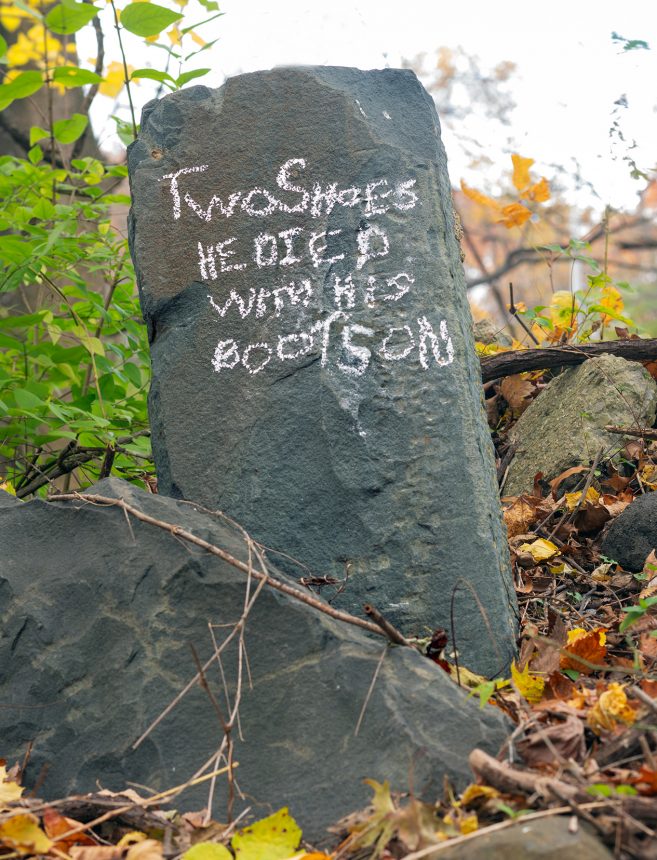 TWOSHOES
HE DIED
WITH HIS
BOOTSON